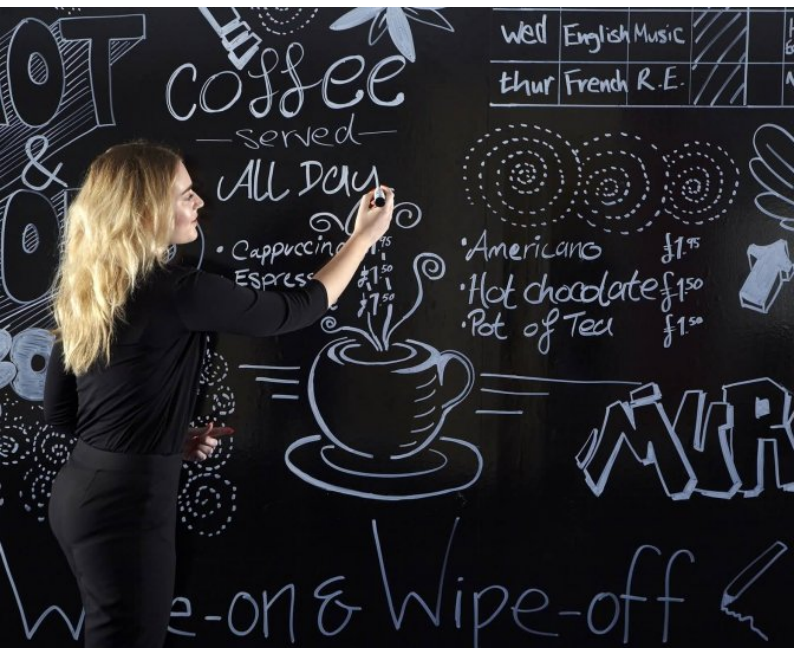 OT
&
Coffee
served
All Day
• Cappuccin 1.95
Espress £1.50
£1.50
Wed English Music
thur French R.E.
• Americano £1.95
• Hot chocolate £1.50
• Pot of Tea £1.50
MUR
W e-on & Wipe-off